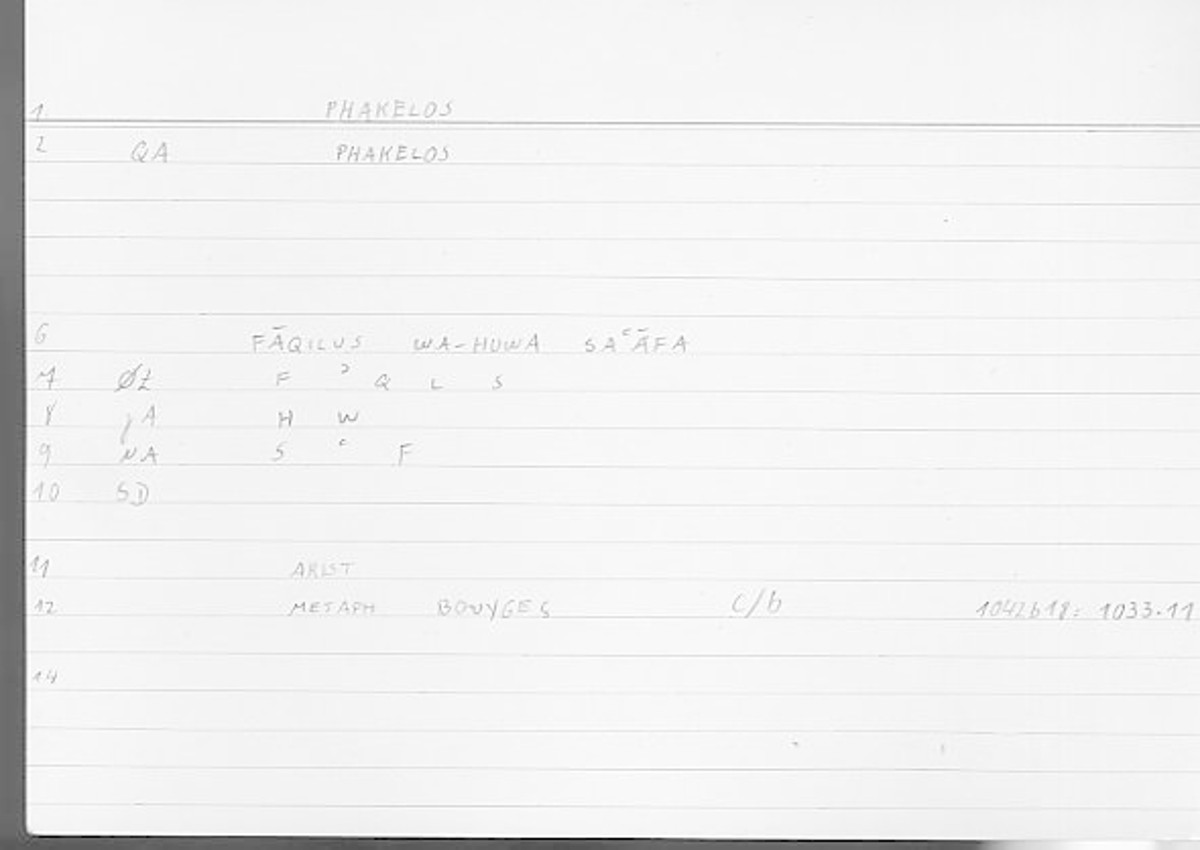 1. PHAKELOS
2 QA PHAKELOS
6 FĀQILUS WA-HUWA SAʿĀFA
7 ØZ F ʾ Q L S
8 gA H W
9 NA S ʿ F
10 SD
11 ARIST
12 METAPH BOUYGES c/b 1042b18: 1033.11
14